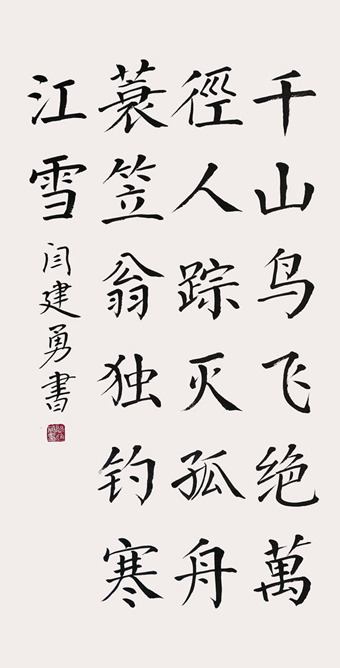 千山鸟飞绝萬
徑人踪灭孤舟
蓑笠翁独钓寒
江雪
闫建勇書